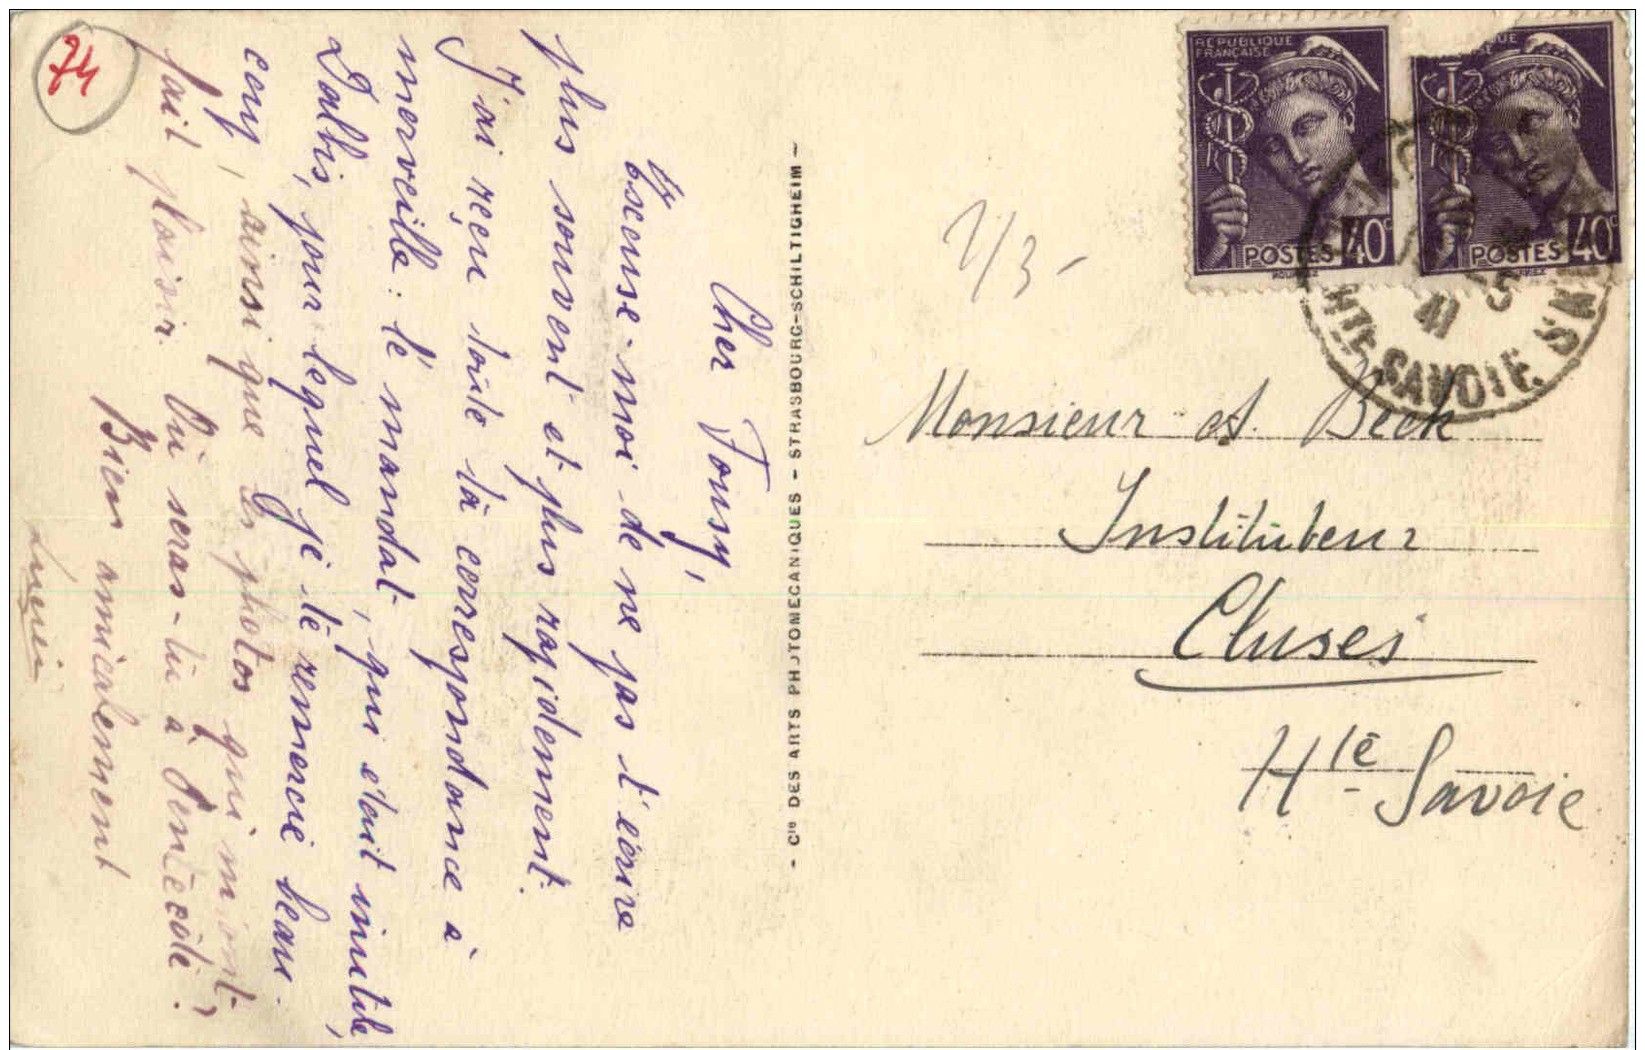 Cher Tousy,
Excuse-moi de ne pas t'écrire
plus souvent et plus rapidement.
J'ai reçu toute ta correspondance à
merveille : le mandat, qui était inutile,
Dalbis, pour lequel je te remercie beau-
coup, ainsi que les photos qui m'ont
fait plaisir. Où seras-tu à Pentecôte ?
Bien amicalement
74
- Cie DES ARTS PHOTOMECANIQUES - STRASBOURG-SCHILTIGHEIM -
REPUBLIQUE
FRANÇAISE
POSTES 40c
POSTES 40c
41
HTE SAVOIE
1/3 -
Monsieur A. Beck
Instituteur
Cluses
Hte Savoie